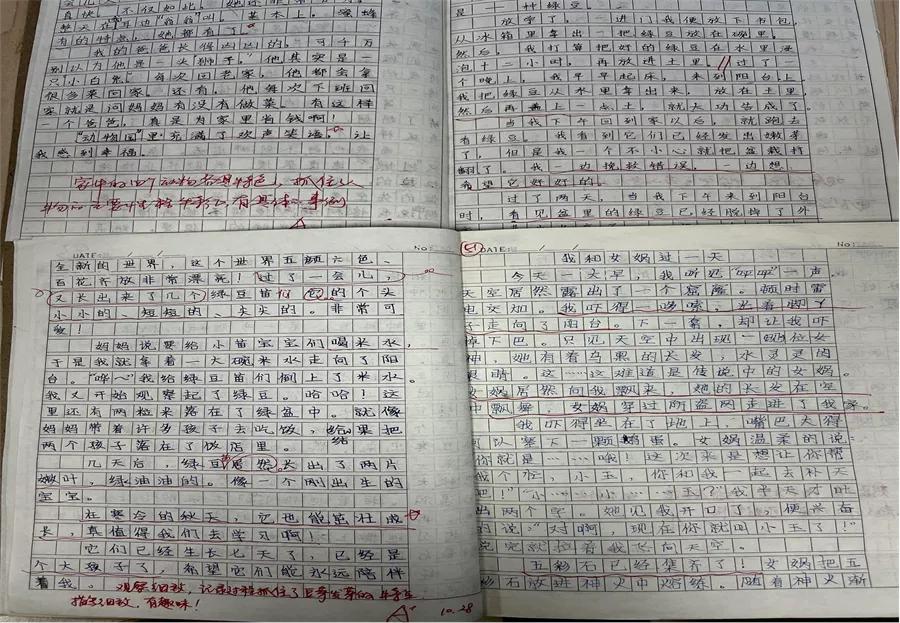 整天在耳边"嗡嗡"叫。基本上，蜜蜂
有的特点，她都有了。
我的爸爸长得凶凶的。可千万
别以为他是一头狮子。他其实是一
只小白兔。每次回老家，他都会拿
很多菜回家。还有，他每次下班回
家就是问妈妈有没有做菜。有这样
一个爸爸，真是为家里省钱啊！
"动物园"里充满了欢声笑语。让
我感到幸福。
是二十一粒绿豆。
放学了。一进门我便放下书包，
从冰箱里拿出一把绿豆放在碗里。
然后，我打算把好的绿豆在水里浸
泡十二小时。再放进土里。过了一
个晚上，我早早起床，来到阳台上
我把绿豆从水里拿出来，放在土里，
然后再盖上一点土，就大功告成了。
当我下午回到家以后，就跑去
看绿豆。我看到它们已经发出嫩芽
了，但是我一个不小心就把盆栽打
翻了。我一边挽救错误，一边想
希望它好好的。
过了两天，当我下午来到阳台
时，看见盆里的绿豆已经脱掉了外
DATE: / / No:
全新的世界，这个世界五颜六色、
百花齐放非常漂亮！过了一会儿，
又长出来了几个绿豆苗们它的个头
小小的、短短的、尖尖的。非常可
爱！
妈妈说要给小苗宝宝们喝米水，
于是我就拿着一大碗米水走向了阳
台。"哗～"我给绿豆苗们倒上了米水。
我又开始观察起了绿豆。哈哈！这
里还有两粒米落在了绿盆中。就像
妈妈带着许多孩子去吃饭，结果把
两个孩子落在了饭店里。
几天后，绿豆居然长出了两片
嫩叶，绿油油的。像一个刚出生的
宝宝。
在寒冷的秋天，它也能茁壮成
长，真值得我们去学习啊！
它们已经生长七天了，已经是
个大孩子了，希望它们能永远陪伴
着我。
观察细致，
描写细致，有趣味！
A 10.28
51 DATE: / / No:
我和女娲过一天
今天一大早，我听见"呼呼"一声。
天空居然露出了一个窟窿。顿时雷
电交加。我吓得一哆嗦，光着脚丫
子走向了阳台。下一幕，却让我吓
掉下巴。只见天空中出现一位女
神，她有着乌黑的长发，水灵灵的
眼睛。这……这难道是传说中的女娲。
女娲居然向我飘来，她的长发在空
中飘舞，女娲穿过防盗网走进了我家。
我吓得坐在了地上，嘴巴大得
可以塞下一颗鹅蛋。女娲温柔的说：
你就是……哦！这次来是想让你帮
我个忙，小玉，你和我一起去补天
吧！""小……小……玉？"我半天才吐
出两个字。她见我开口了，便兴奋
的说："对啊，现在你就叫小玉了！"
说完就拉着我飞向天空。
五彩石已经集齐了！女娲把五
彩石放进神火中熔炼。随着神火渐